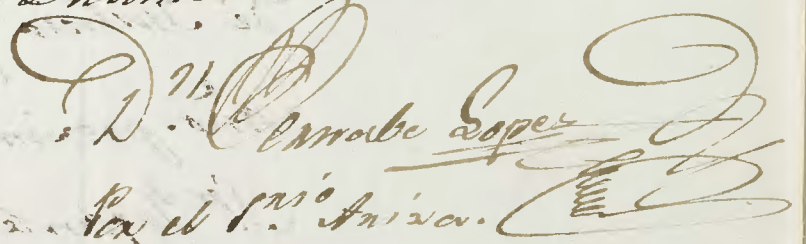 Dn. Bernabe Lopez
Por el Srio Ariza.